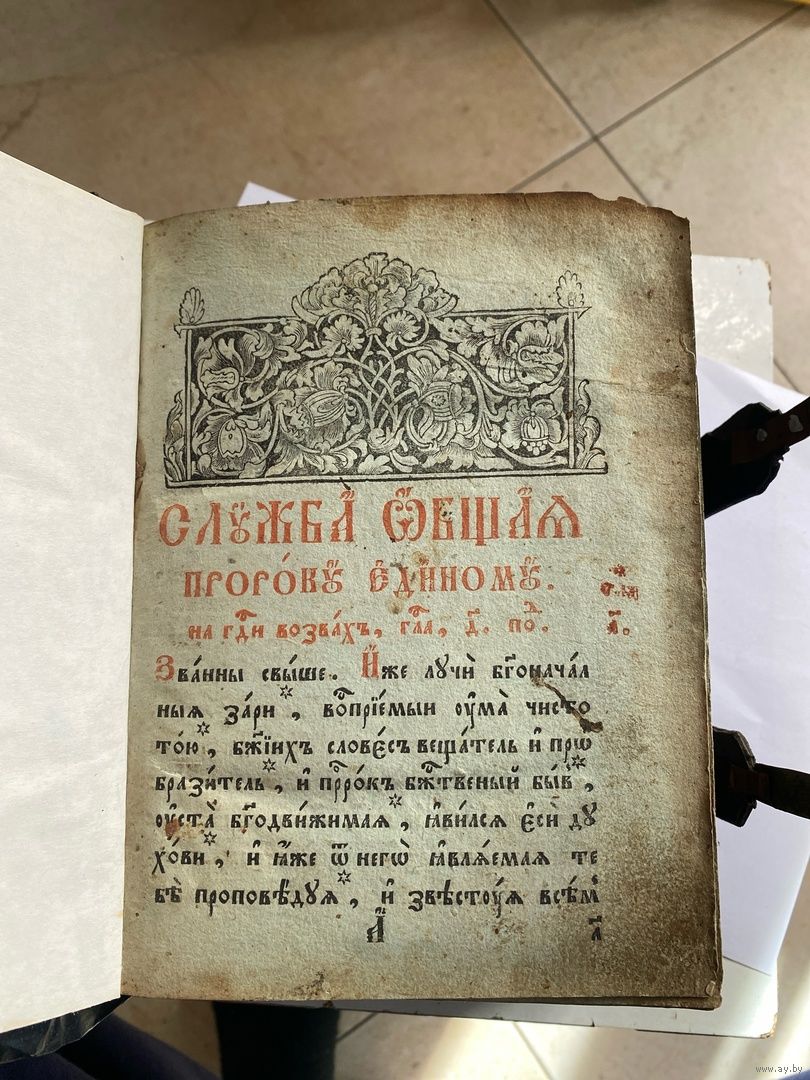 СлꙋжбА̀ Ѻ҆́бщаѧ
проро́кꙋ є҆ди́номꙋ.
на гдⷭ҇и возва́хъ, гла, д҃. поⷣ.
а҃.
Зва́нны свы́ше. И҆́же лꙋчѝ бг҃онача́л
ныѧ зарѝ*, воспрїе́мыи ᲂу҆ма̀ чисто
то́ю*, бж҃їихъ слове́съ вѣща́тель и҆ прѡ
брази́тель*, и҆ прⷪ҇ро́къ бж҃твеный бы́въ*,
ᲂу҆ста̀ бг҃одви́жимаѧ*, ꙗ҆ви́лсѧ є҆сѝ дꙋ
хо́ви*, и҆ ꙗ҆́же ѿ негѡ̀ ꙗ҆влѧ́емаѧ те
бѣ̀ проповѣ́дꙋѧ*, и҆ звѣстꙋ́ѧ всѣ́мъ
а҃ а҃
www.ay.by